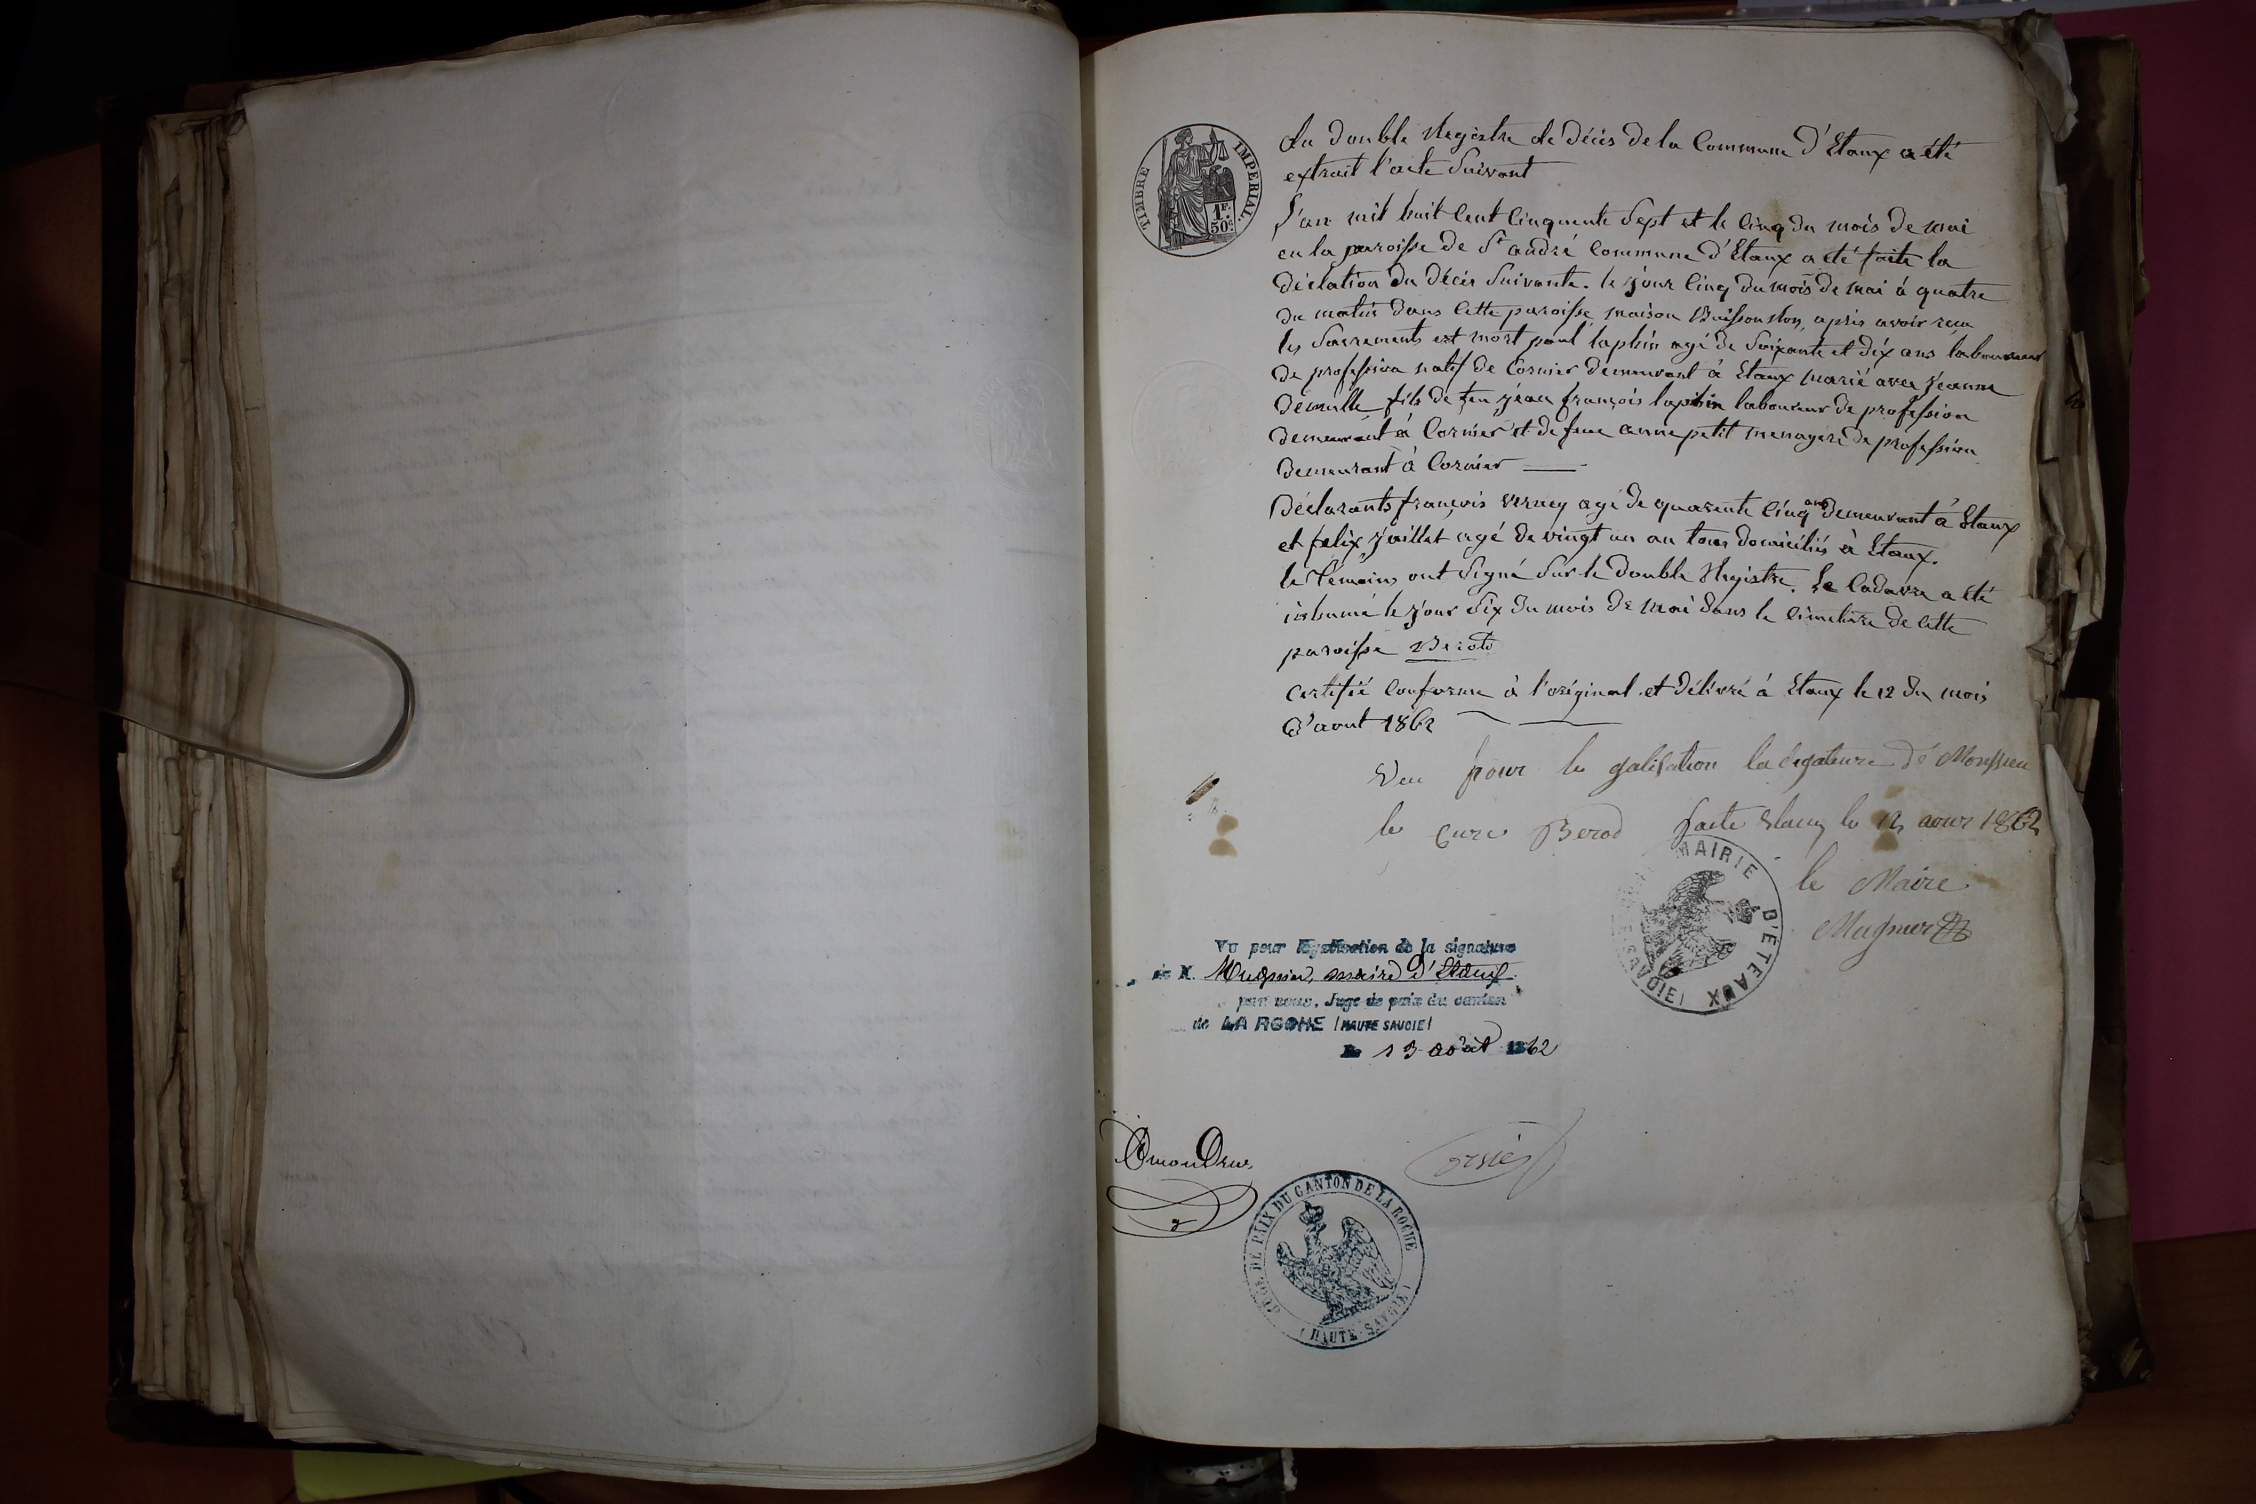 TIMBRE IMPERIAL
1F.
50c.
Du double Registre de décès de la Commune d'Etaux a été
extrait l'acte suivant
L'an mil huit Cent Cinquante Sept et le Cinq du mois de mai
en la paroisse de St andré Commune d'Etaux a été faite la
déclation du décès suivante. le jour Cinq du mois de mai à quatre
du matin dans Cette paroisse maison, après avoir reçu
les Sacrements est mort paul laphin agé de Soixante et dix ans laboureur
de profession natif de Cornier demeurant à Etaux marié avec jeanne
fils de feu jean françois laphin laboureur de profession
demeurant à Cornier et de feue anne petit menagere de profession
demeurant à Cornier
Déclarants françois verney agé de quarente Cinq ans demeurant à Etaux
et felix juillet agé de vingt un an tous domiciliés à Etaux.
le Témoins ont signé sur le double Registre. Le Cadavre a été
inhumé le jour six du mois de mai dans le Cimetière de Cette
paroisse
Certifié Conforme à l'original et délivré à Etaux le 12 du mois
d'aout 1862
Veu pour le galisation la cigateure de Monssieu
le Cure Berod faite Etaux le 12 aour 1862
MAIRIE D'ETEAUX
SAVOIE)
le Maire
Mugnier
Vu pour légalisation de la signature
de M. Mugnier, maire d'Etaux
par nous, Juge de paix du canton
de LA ROCHE (HAUTE SAVOIE)
le 13 août 1862
JUGE DE PAIX DU CANTON DE LA ROCHE
(HAUTE-SAVOIE)